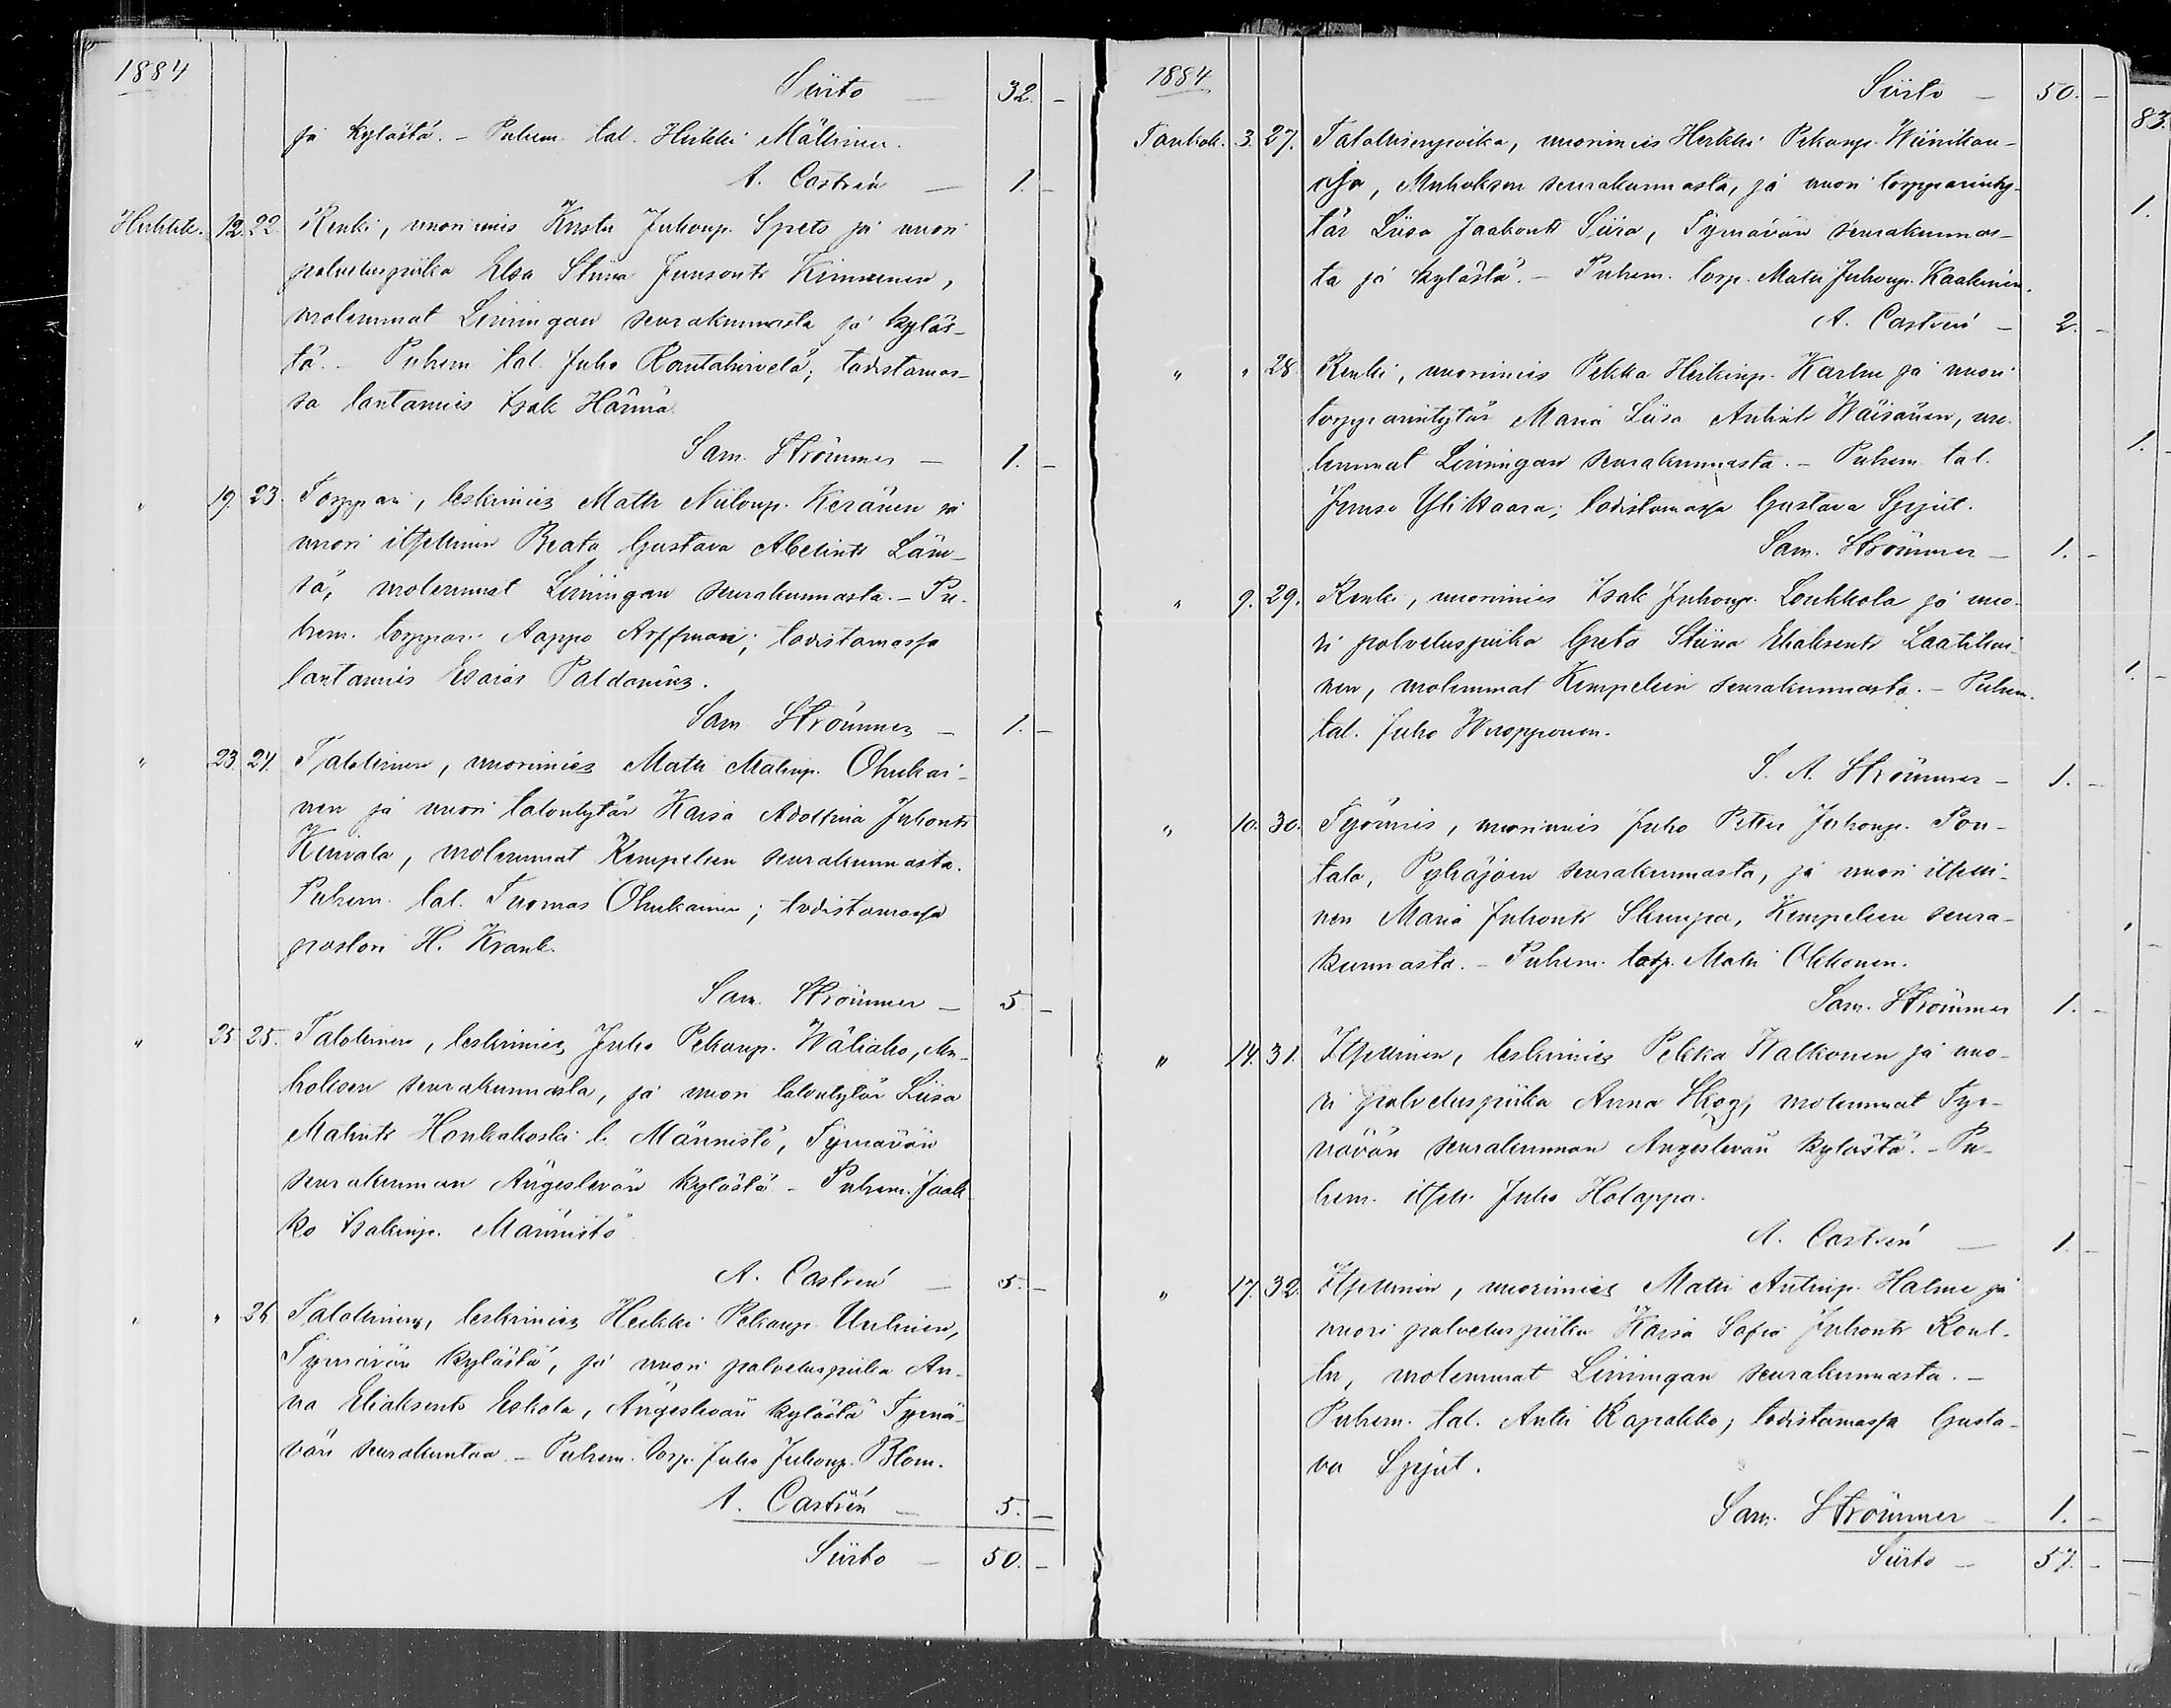 1884
Siirto — 32. —
ja kylästä. – Puhem. tal. Heikki Mällinen.
A. Castrén — 1. —
Huhtik. 12. 22. Renki, nuorimies Kusta Juhonp. Spets ja nuori
palveluspiika Elsa Stiina Juusont. Kinnunen,
molemmat Limingan seurakunnasta ja kyläs-
tä. – Puhem tal. Juho Rantahirvelä; todistamas-
sa lautamies Isak Härmä.
Sam. Strömmer — 1. —
" 19. 23. Torppari, leskimies Matti Niilonp. Keränen ja
nuori itsellinen Beata Gustava Abelint. Läm-
sä, molemmat Limingan seurakunnasta. – Pu-
hem. torppari Aappo Arffman; todistamassa
lautamies Esaias Paldanius.
Sam Strömmer — 1. —
" 23. 24. Talollinen, nuorimies Matti Matinp. Ohukai-
nen ja nuori talontytär Kaisa Adolfina Juhont.
Keirala, molemmat Kempeleen seurakunnasta.
Puhem. tal. Tuomas Ohukainen; todistamassa
pastori H. Krank.
Sam. Strömmer — 5 —
" 25. 25. Talollinen, leskimies Juho Pekanp. Wäliaho, Mu-
hoksen seurakunnasta, ja nuori talontytär Liisa
Matint. Honkakoski l. Männistö, Tyrnävän
seurakunnan Ängeslevän kylästä – Puhem. Jaak
ko Isakinp. Männistö
A. Castrén — 5. —
" " 26 Talollinen, leskimies Heikki Pekanp. Uutinen,
Tyrnävän kylästä, ja nuori palveluspiika An-
na Eliaksent. Eskola, Ängeslevän kylästä Tyrnä-
vän seurakuntaa. – Puhem. torp. Juho Juhonp. Blom.
A. Castrén — 5. —
Siirto — 50. —
1884
Siirto — 50. —
Toukok. 3. 27. Talollisenpoika, nuorimies Heikki Pekanp. Wiinikan-
oja, Muhoksen seurakunnasta, ja nuori torpparinty-
tär Liisa Jaakont. Siira, Tyrnävän seurakunnas-
ta ja kylästä. – Puhem. torp. Matti Juhonp. Kaakinen.
A. Castrén — 2. —
" " 28 Renki, nuorimies Pekka Heikinp. Karhu ja nuori
torpparintytär Maria Liisa Antint. Wäisänen, mo-
lemmat Limingan seurakunnasta. – Puhem. tal.
Juuso Ylitaara; todistamassa Gustava Spjut.
Sam. Strömmer — 1. —
" 9. 29. Renki, nuorimies Isak Juhonp. Loukkola ja nuo-
ri palveluspiika Greta Stiina Eliaksent. Laatikai-
nen, molemmat Kempeleen seurakunnasta. – Puhem.
tal. Juho Wuopponen.
S. A. Strömmer — 1. —
" 10. 30. Työmies, nuorimies Juho Petter Juhonp. Pou-
tala, Pyhäjoen seurakunnasta, ja nuori itselli-
nen Maria Juhont. Slumpa, Kempeleen seura-
kunnasta. – Puhem. torp. Matti Okkonen.
Sam. Strömmer 1. —
" 14. 31. Itsellinen, leskimies Pekka Walkonen ja nuo-
ri palveluspiika Anna Skog, molemmat Tyr-
nävän seurakunnan Angeslevän kylästä. – Pu-
hem. itsell. Juho Holappa.
A. Castrén — 1. —
" 17. 32. Itsellinen, nuorimies Matti Antinp. Halme ja
nuori palveluspiika Kaisa Sofia Juhont. Rout-
tu, molemmat Limingan seurakunnasta. –
Puhem. tal. Antti Rapakko; todistamassa Gusta-
va Spjut.
Sam. Strömmer — 1. —
Siirto — 57. —
83.
1.
1. —
1. —